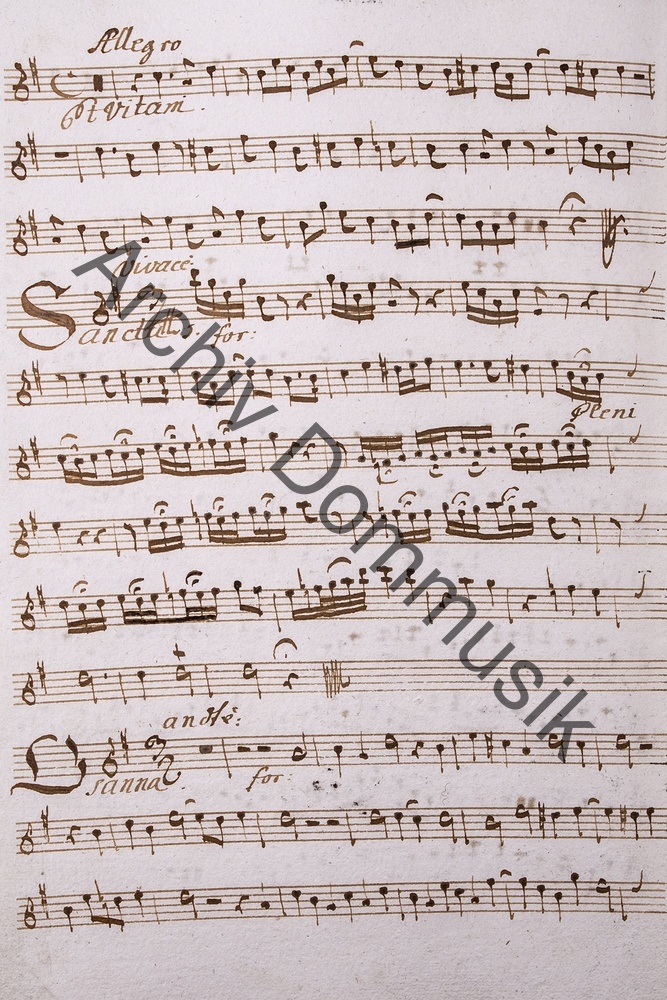 Allegro
Et Vitam.
Vivace
Sanctus. for:
Pleni
andte:
Osanna for:
Archiv Dommusik